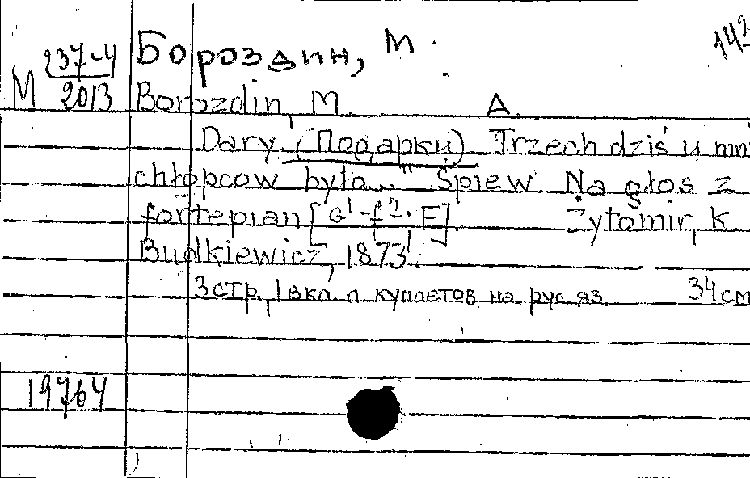 Бороздин, М. 142
М 237-4
2013
Borozdin, M. A.
Dary. (Подарки) Trzech dziś u mn
chłopcow było..." Śpiew. Na głos z
fortepian [G¹-f². F] Żytomir, K.
Budkiewicz, 1873.
3 стр. 1 вкл. л куплетов на рус. яз. 34 см
19764